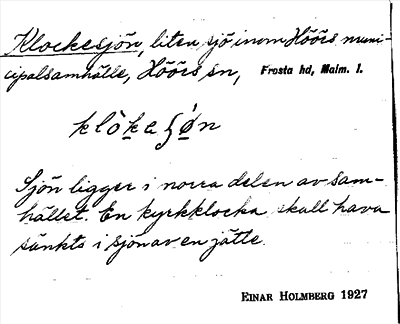 Klockesjön, liten sjö inom Höörs muni-
cipalsamhälle, Höörs sn, Frosta hd, Malm. l.
Sjön ligger i norra delen av sam-
hället. En kyrkklocka skall hava
sänkts i sjön av en jätte.
EINAR HOLMBERG 1927